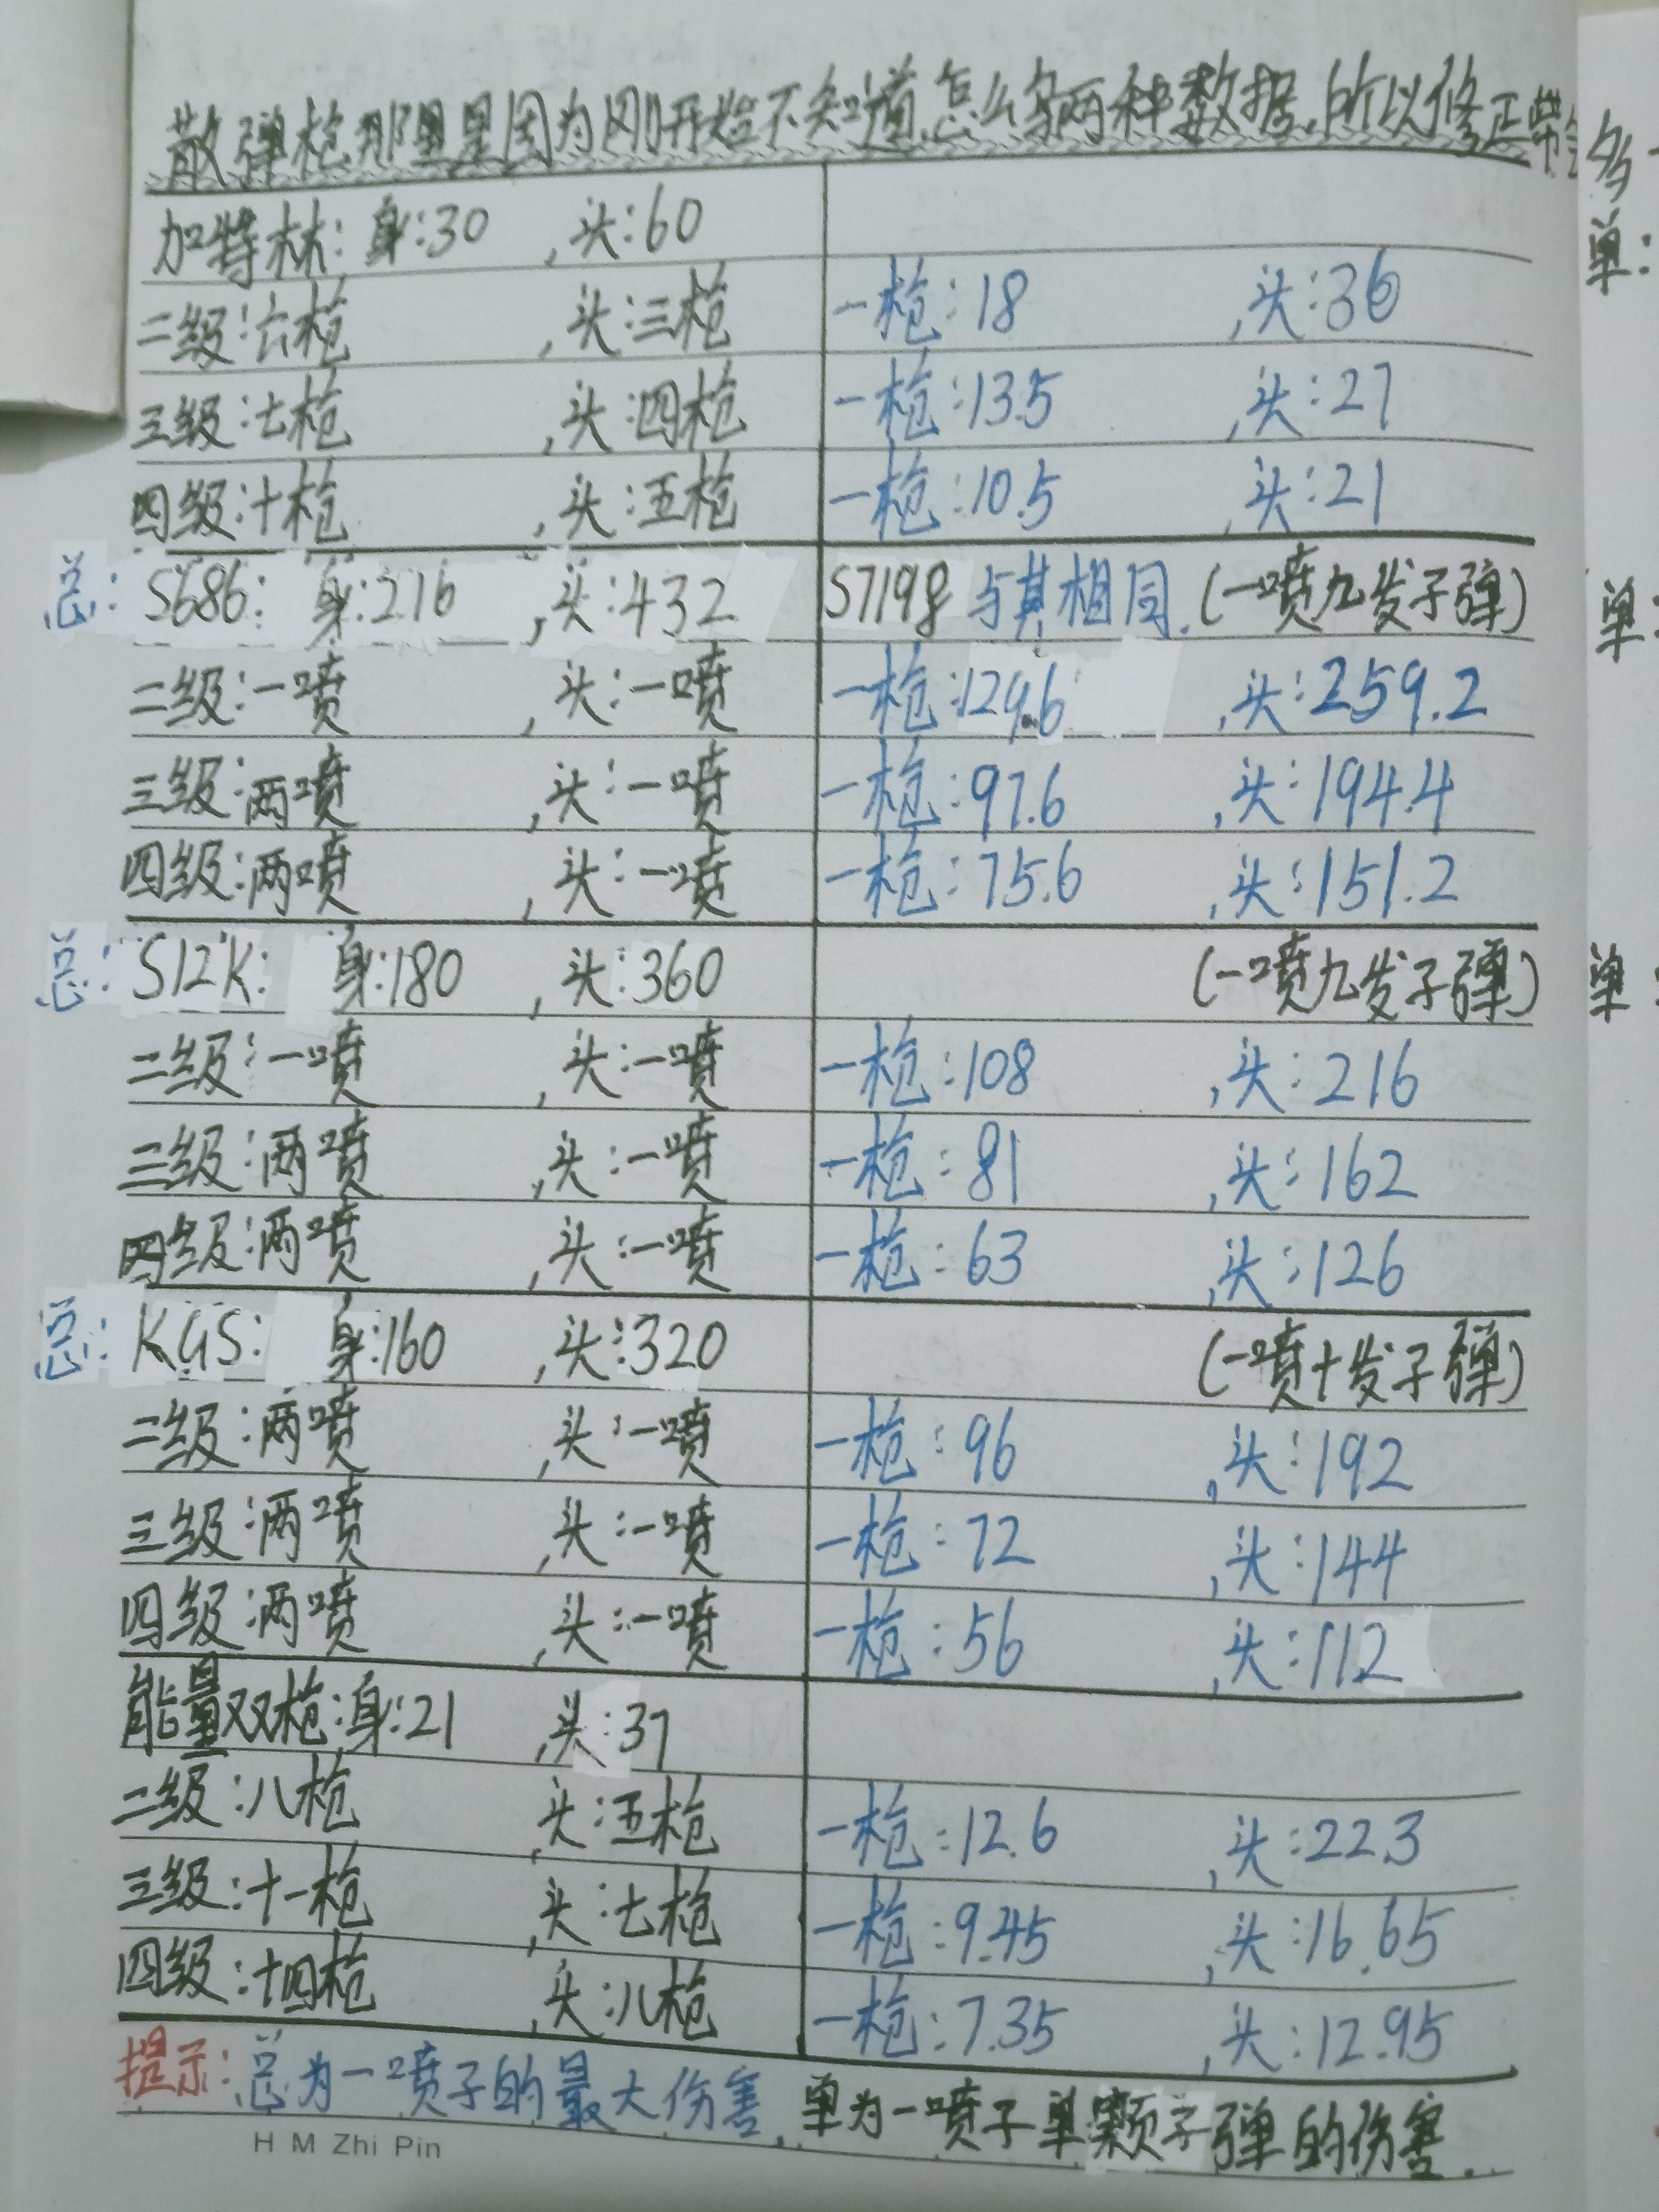 散弹枪那里是因为刚开始不知道,怎么写两种数据,所以修正带
加特林:身:30 ,头:60
二级:六枪 ,头:三枪 一枪:18 ,头:36
三级:七枪 ,头:四枪 一枪:13.5 ,头:27
四级:十枪 ,头:五枪 一枪:10.5 ,头:21
总:S686:身:216 ,头:432 S7198与其相同.(一喷九发子弹)
二级:一喷 ,头:一喷 一枪:129.6 ,头:259.2
三级:两喷 ,头:一喷 一枪:97.6 ,头:194.4
四级:两喷 ,头:一喷 一枪:75.6 ,头:151.2
总:S12K:身:180 ,头:360 (一喷九发子弹)
二级:一喷 ,头:一喷 一枪:108 ,头:216
三级:两喷 ,头:一喷 一枪:81 ,头:162
四级:两喷 ,头:一喷 一枪:63 ,头:126
总:KGS:身:160 ,头:320 (一喷十发子弹)
二级:两喷 ,头:一喷 一枪:96 ,头:192
三级:两喷 ,头:一喷 一枪:72 ,头:144
四级:两喷 ,头:一喷 一枪:56 ,头:112
能量双枪:身:21 ,头:37
二级:八枪 ,头:五枪 一枪:12.6 ,头:22.3
三级:十一枪 ,头:七枪 一枪:9.45 ,头:16.65
四级:十四枪 ,头:八枪 一枪:7.35 ,头:12.95
提示:总为一喷子的最大伤害,单为一喷子单颗子弹的伤害.
H M Zhi Pin
多
单:
单:
单: